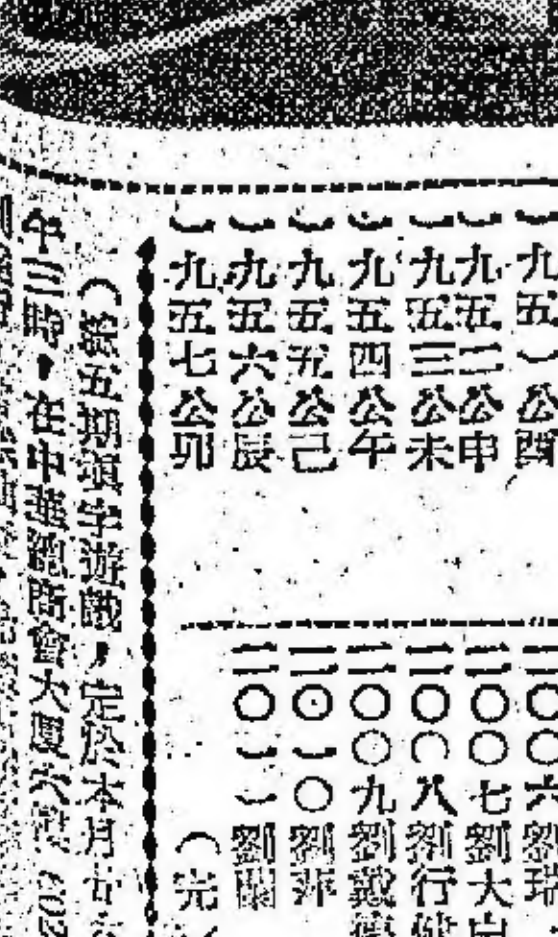 一九五一公酉
一九五二公申
一九五三公未
一九五四公午
一九五五公己
一九五六公辰
一九五七公卯
二〇〇六劉瑞
二〇〇七劉大
二〇〇八劉行健
二〇〇九劉戴
二〇一〇劉萍
二〇一一劉蘭
（完
（第五期填字遊戲，定於本月廿六
午三時，在中華總商會大厦六 602